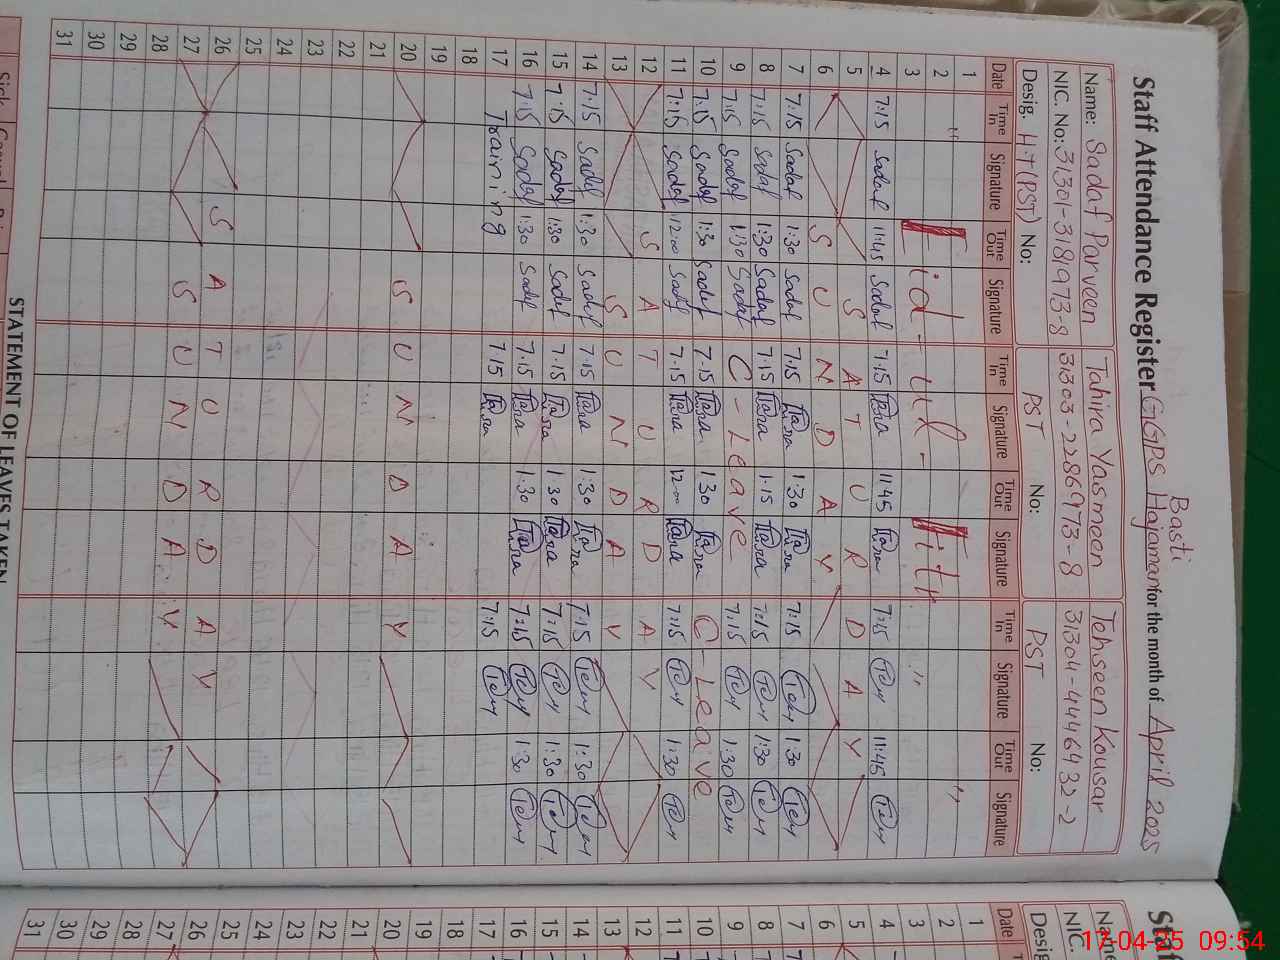 Basti
Staff Attendance Register GGPS Hajaman for the month of April 2025
Name: Sadaf Parveen Tahira Yasmeen Tehseen Kousar
NIC. No: 31301-3181973-8 31303-2286973-8 31304-4446432-2
Desig. H.T(PST) No: PST No: PST No:
Date Time In Signature Time Out Signature Time In Signature Time Out Signature Time In Signature Time Out Signature
1
2
3 Eid-ul-Fitr
4 7:15 Sadaf 11:45 Sadaf 7:15 11:45 7:15 11:45
5 SATURDAY
6 SUNDAY
7 7:15 Sadaf 1:30 Sadaf 7:15 1:30 7:15 1:30
8 7:15 Sadaf 1:30 Sadaf 7:15 1:15 7:15 1:30
9 7:15 Sadaf 1:30 Sadaf C-Leave 7:15 1:30
10 7:15 Sadaf 1:30 Sadaf 7:15 1:30 C-Leave
11 7:15 Sadaf 12:00 Sadaf 7:15 12:00 7:15 1:30
12 SATURDAY
13 SUNDAY
14 7:15 Sadaf 1:30 Sadaf 7:15 1:30 7:15 1:30
15 7:15 Sadaf 1:30 Sadaf 7:15 1:30 7:15 1:30
16 7:15 Sadaf 1:30 Sadaf 7:15 1:30 7:15 1:30
17 Training 7:15 7:15
18
19
20 SUNDAY
21
22
23
24
25
26 SATURDAY
27 SUNDAY
28
29
30
31
STATEMENT OF LEAVES TAKEN
Sick Casual
Staf
Name
NIC.
Desig
Date
1
2
3
4
5
6
7
8
9
10
11
12
13
14
15
16
17
18
19
20
21
22
23
24
25
26
27
28
29
30
31
17-04-25 09:54